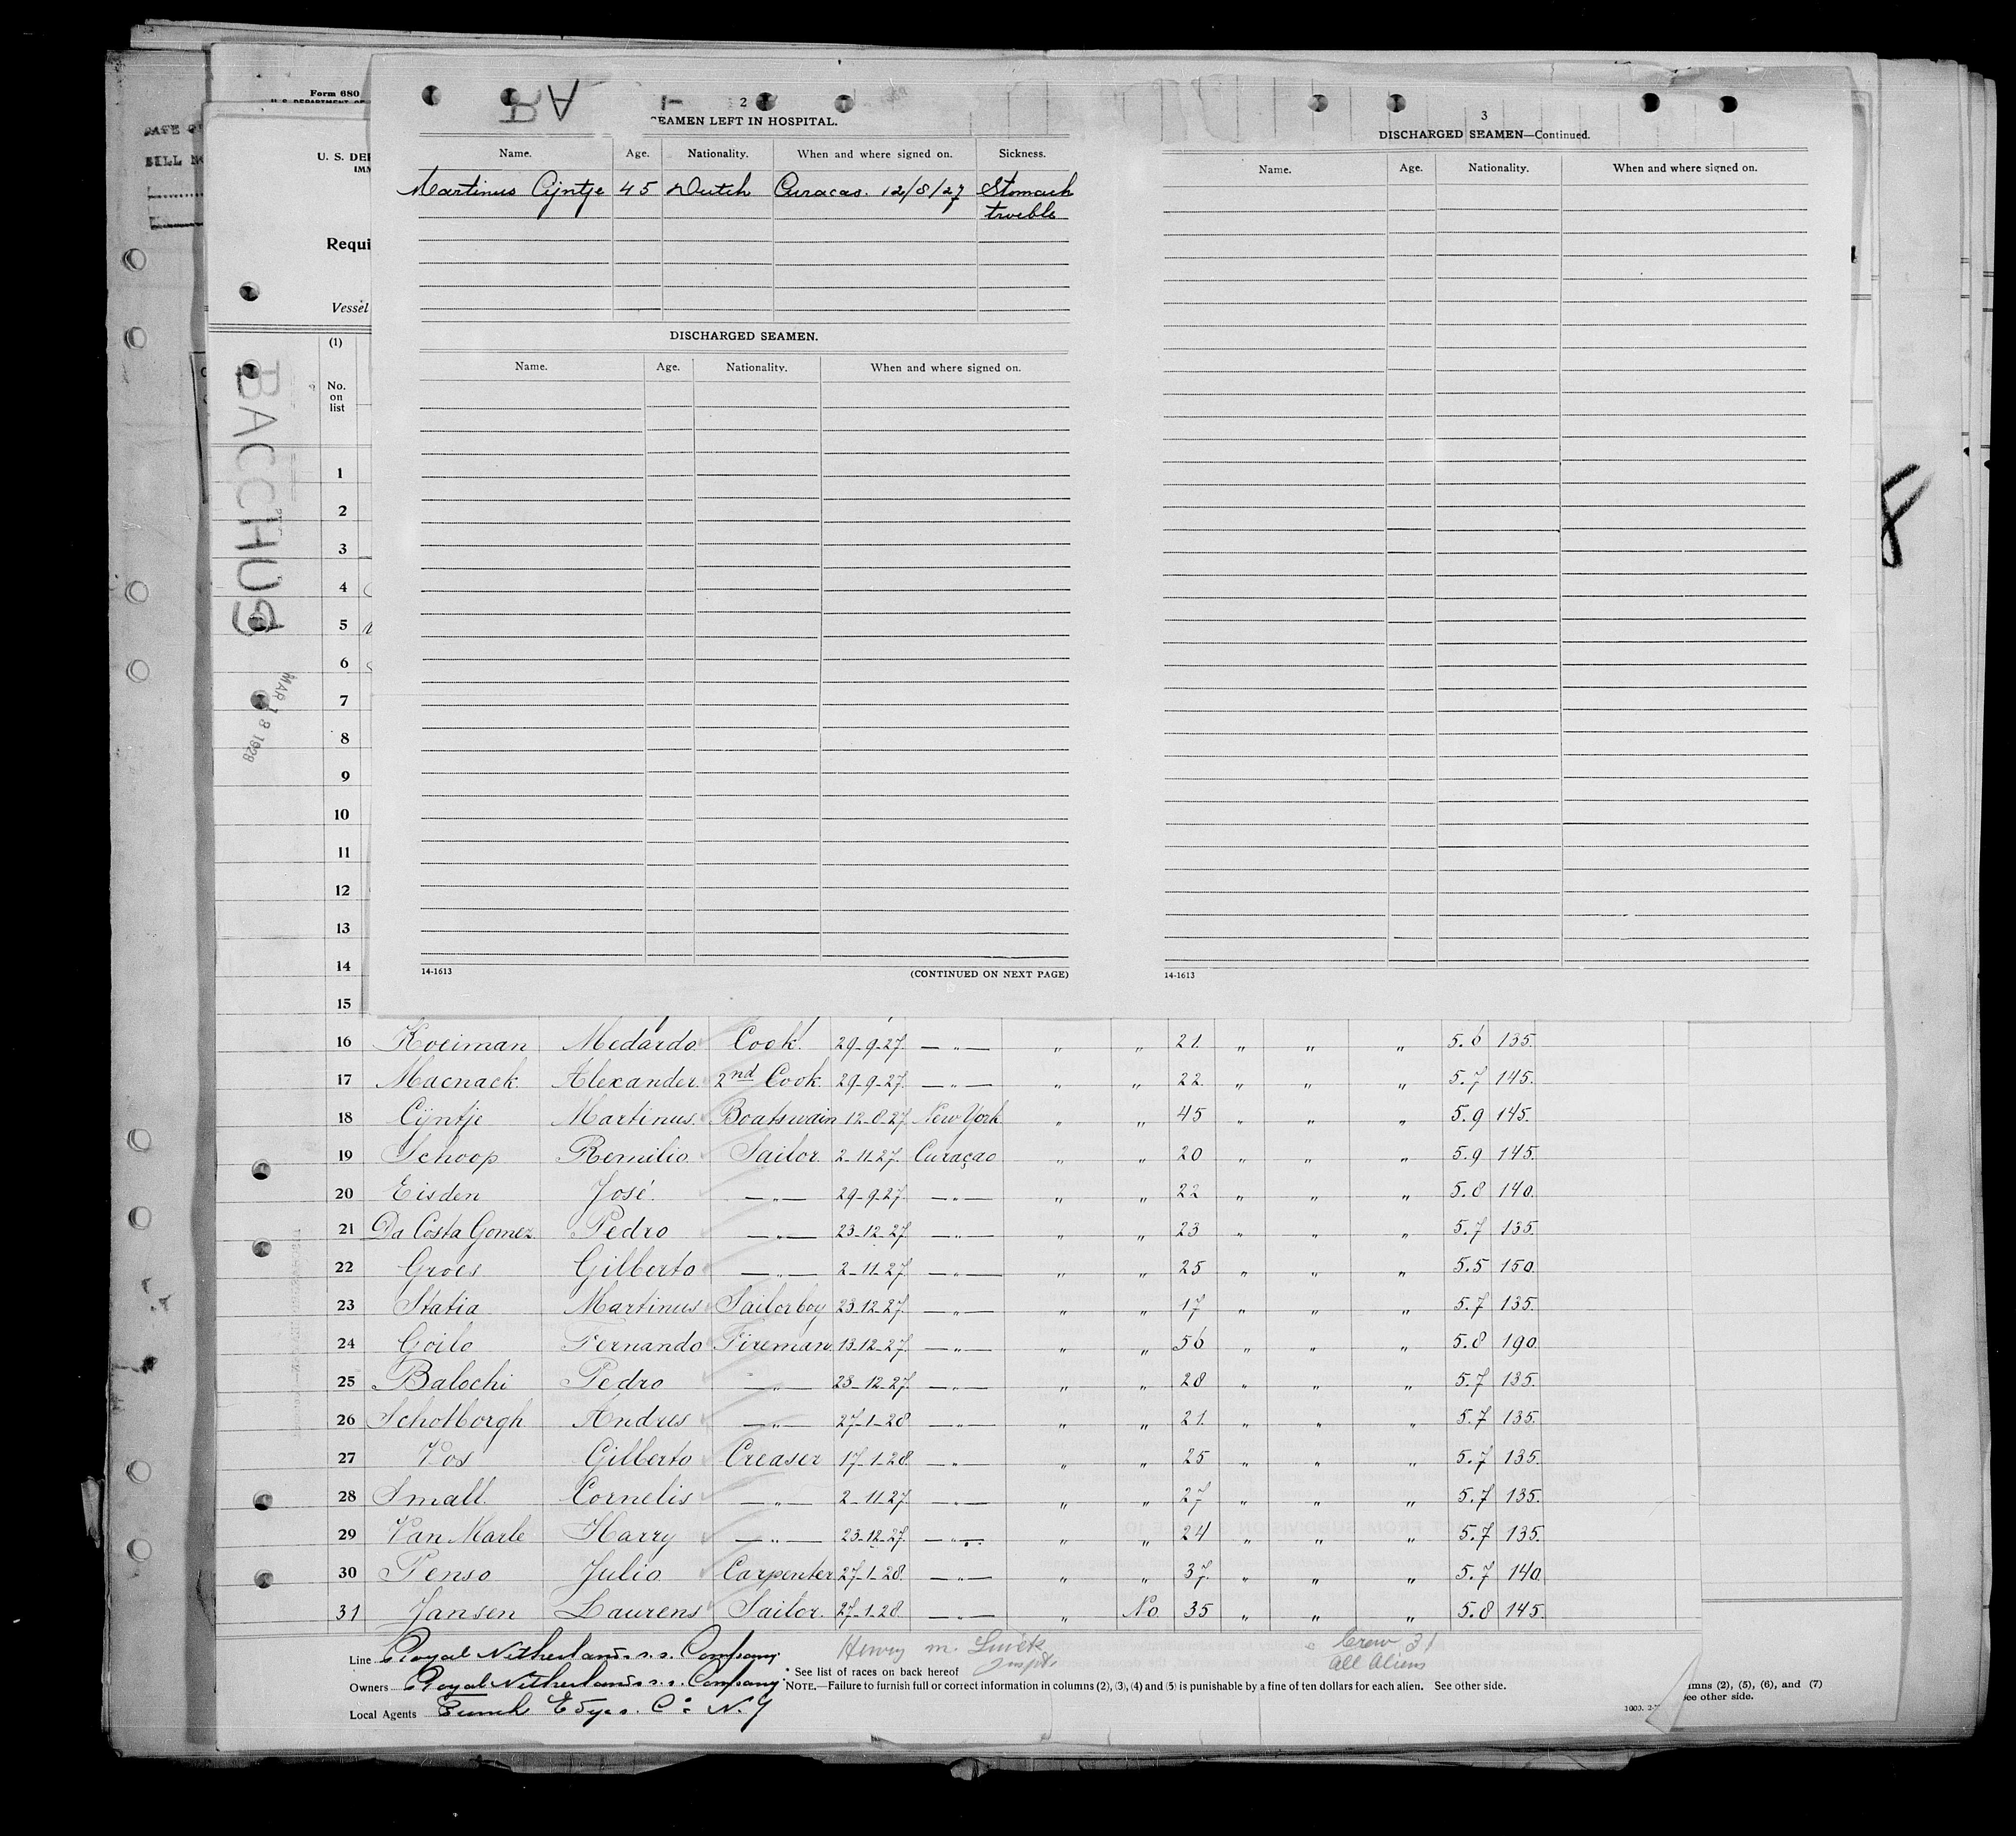 Form 680
DATE OF
BILL NO
U. S. DEP
IMM
Requi
Vessel
BACCHUS
MAR 18 1928
2
SEAMEN LEFT IN HOSPITAL.
Name. Age. Nationality. When and where signed on. Sickness.
Martinus Cijntje 45 Dutch Curacao. 12/8/27 Stomach
trouble
DISCHARGED SEAMEN.
Name. Age. Nationality. When and where signed on.
14-1613 (CONTINUED ON NEXT PAGE)
3
DISCHARGED SEAMEN—Continued.
Name. Age. Nationality. When and where signed on.
14-1613
8
(1)
No.
on
list
1
2
3
4
5
6
7
8
9
10
11
12
13
14
15
16 Koeiman Medardo. Cook. 29-9-27. —"— " " 21. " " " 5.6 135.
17 Macnack. Alexander. 2nd Cook. 29-9-27. —"— " " 22. " " " 5.7 145.
18 Cijntje Martinus. Boatswain 12-8-27 New York " " 45 " " " 5.9 145.
19 Schoop Remilio. Sailor. 2-11-27. Curaçao " " 20 " " " 5.9 145.
20 Eisden José. —"— 29-9-27. —"— " " 22 " " " 5.8 140.
21 Da Costa Gomez. Pedro —"— 23-12-27. —"— " " 23 " " " 5.7 135.
22 Groes Gilberto —"— 2-11-27. —"— " " 25 " " " 5.5 150.
23 Statia Martinus Sailorboy 23-12-27. —"— " " 17 " " " 5.7 135.
24 Goilo Fernando Fireman. 13-12-27. —"— " " 56 " " " 5.8 190.
25 Balochi Pedro —"— 23-12-27. —"— " " 28 " " " 5.7 135.
26 Schotborgh Andres —"— 27-1-28 —"— " " 21. " " " 5.7 135.
27 Vos Gilberto Creaser 17-1-28. —"— " " 25 " " " 5.7 135.
28 Small. Cornelis —"— 2-11-27. —"— " " 27 " " " 5.7 135.
29 Van Marle Harry —"— 23-12-27. —"— " " 24 " " " 5.7 135.
30 Penso Julio. Carpenter 27-1-28. —"— " " 37. " " " 5.7 140.
31 Jansen Laurens Sailor. 27-1-28. —"— " No. 35 " " " 5.8 145.
Line Royal Netherlands s.s. Company.
Henry M.
Crew 31
All Aliens
* See list of races on back hereof
Owners Royal Netherlands s.s. Company.
NOTE.—Failure to furnish full or correct information in columns (2), (3), (4) and (5) is punishable by a fine of ten dollars for each alien. See other side.
Local Agents Funch Edye s. Co N.Y
mns (2), (5), (6), and (7)
see other side.